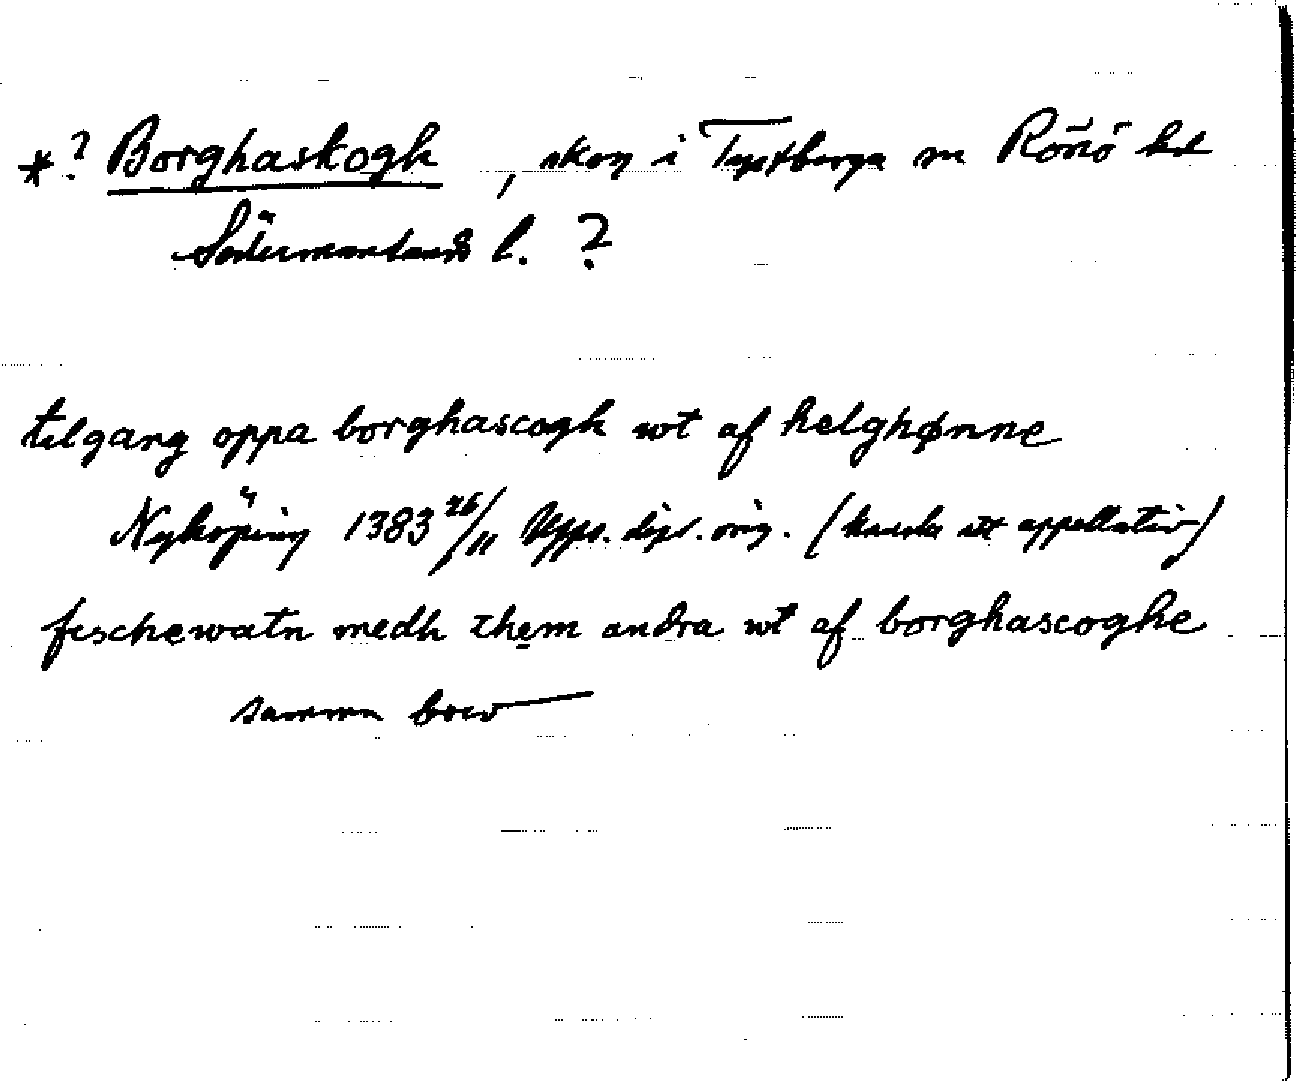 *? Borghaskogh, skog i Tystberga sn Rönö hd
Södermanlands l. ?
tilgang oppa borghascogh wt af helghønne
Nyköping 1383 26/11 Upps. dipl. orig. (kanske ett appellativ)
fischewatn medh them andra wt af borghascoghe
samma brev